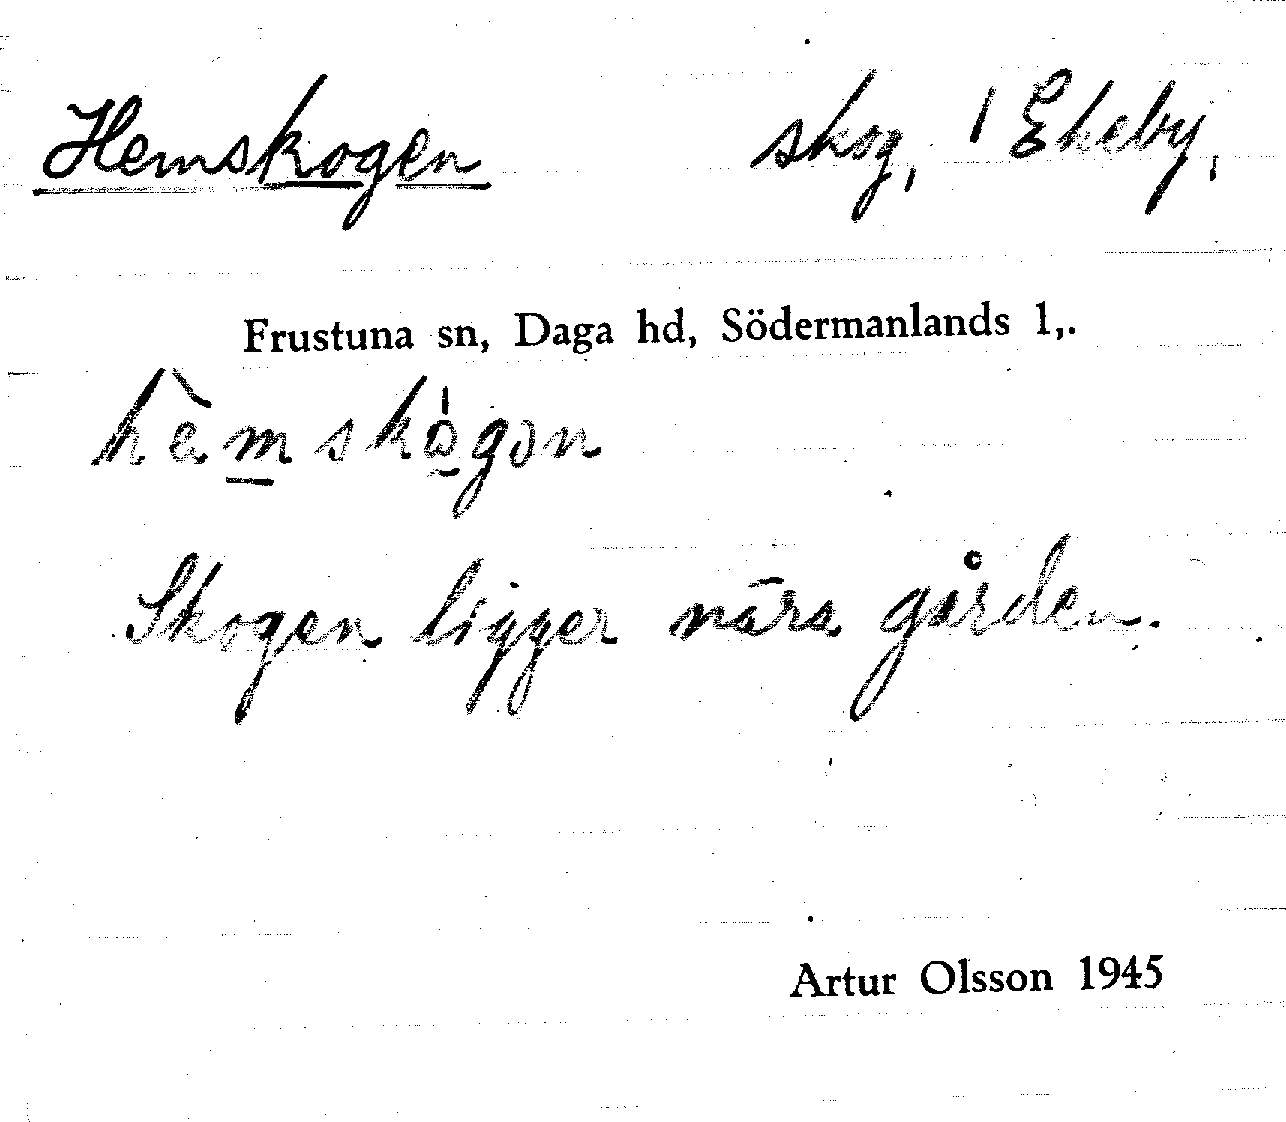 Hemskogen skog, 1 Ekeby,
Frustuna sn, Daga hd, Södermanlands l,.
hèmskògən
Skogen ligger nära gården.
Artur Olsson 1945